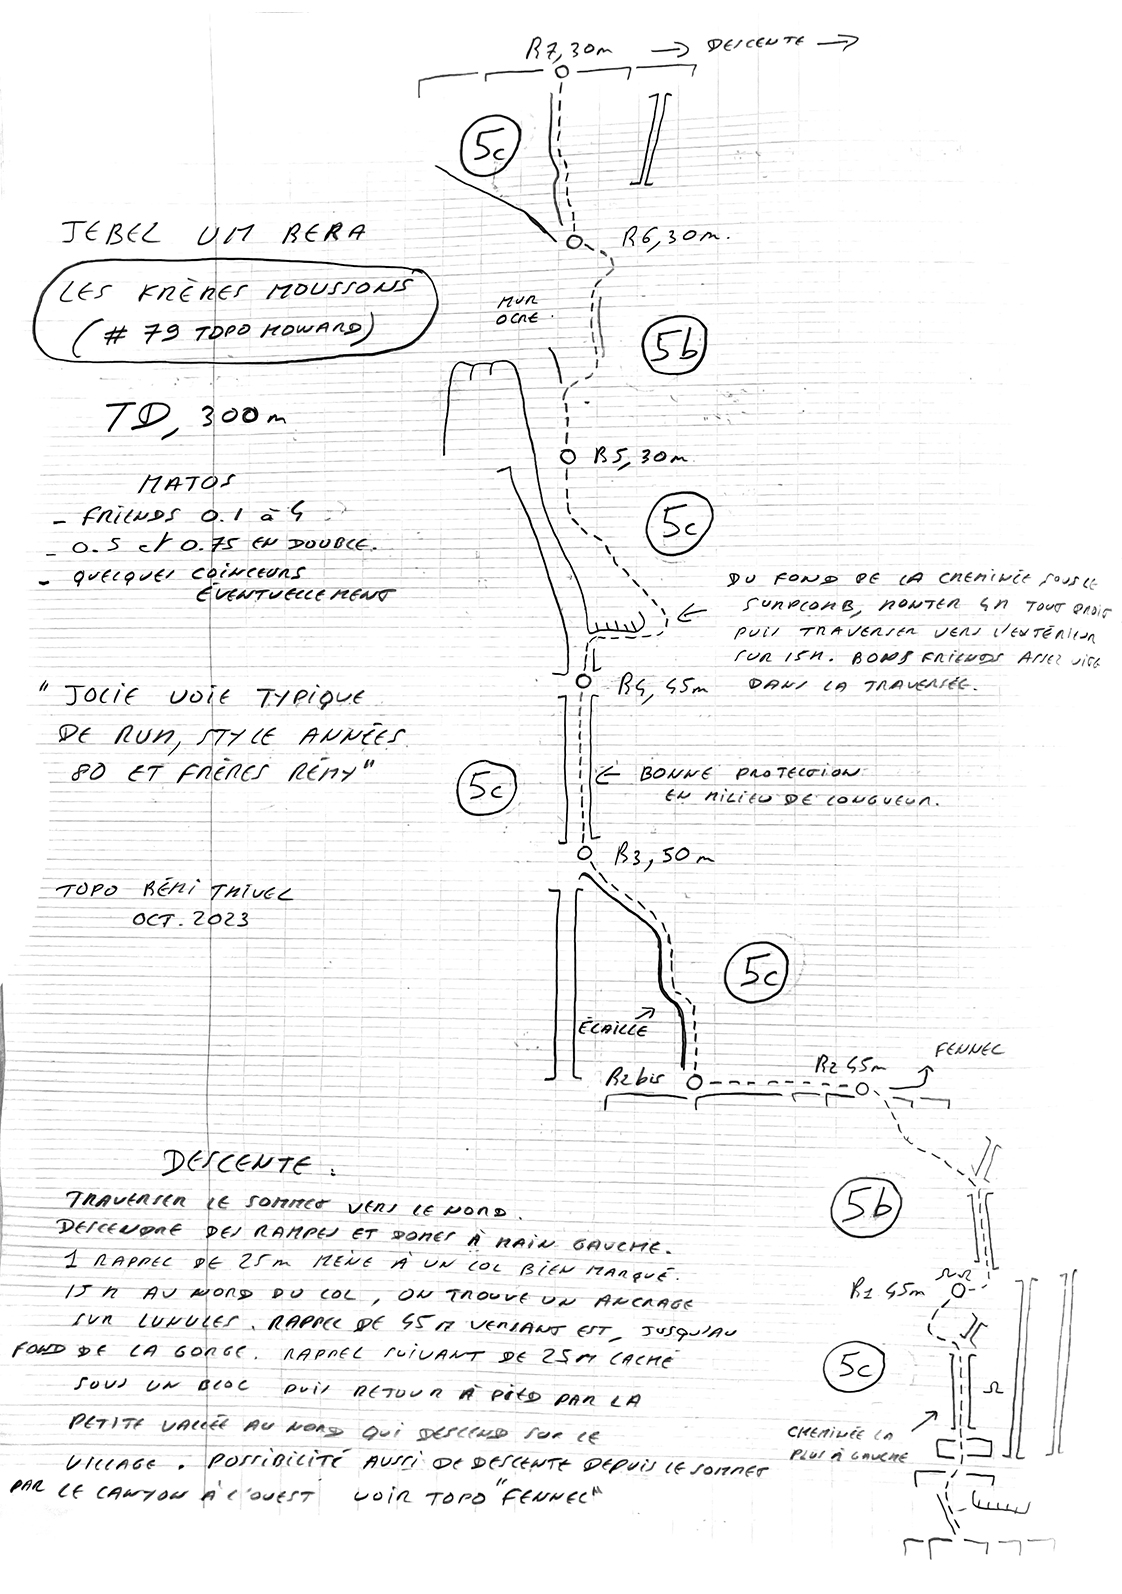 R7, 30m → DESCENTE →
5c
JEBEL UM BERA
R6, 30m.
LES FRÈRES MOUSSONS
(# 79 TOPO HOWARD)
MUR
OCRE.
5b
TD, 300m
R5, 30m
MATOS
- FRIENDS 0.1 à 4
- 0.5 et 0.75 EN DOUBLE.
- QUELQUES COINCEURS
ÉVENTUELLEMENT
5c
DU FOND DE LA CHEMINÉE SOUS LE
SURPLOMB, MONTER 4M TOUT DROIT
PUIS TRAVERSER VERS L'EXTÉRIEUR
SUR 15M. BONS FRIENDS ASSEZ VITE
DANS LA TRAVERSÉE.
R4, 45m
"JOLIE VOIE TYPIQUE
DE RUM, STYLE ANNÉES
80 ET FRÈRES RÉMY"
5c
← BONNE PROTECTION
EN MILIEU DE LONGUEUR.
R3, 50m
TOPO RÉMI THIVEL
OCT. 2023
5c
ÉCAILLE
FENNEL
R2 bis
R2 45m
DESCENTE.
TRAVERSER LE SOMMET VERS LE NORD.
DESCENDRE DES RAMPES ET DOMES À MAIN GAUCHE.
1 RAPPEL DE 25m MÈNE À UN COL BIEN MARQUÉ.
15 M AU NORD DU COL, ON TROUVE UN ANCRAGE
SUR LUNULES. RAPPEL DE 45M VERSANT EST, JUSQU'AU
FOND DE LA GORGE. RAPPEL SUIVANT DE 25M CACHÉ
SOUS UN BLOC PUIS RETOUR À PIED PAR LA
PETITE VALLÉE AU NORD QUI DESCEND SUR LE
VILLAGE. POSSIBILITÉ AUSSI DE DESCENTE DEPUIS LE SOMMET
PAR LE CANYON À L'OUEST VOIR TOPO "FENNEL"
5b
R1 45m
5c
CHEMINÉE LA
PLUS À GAUCHE